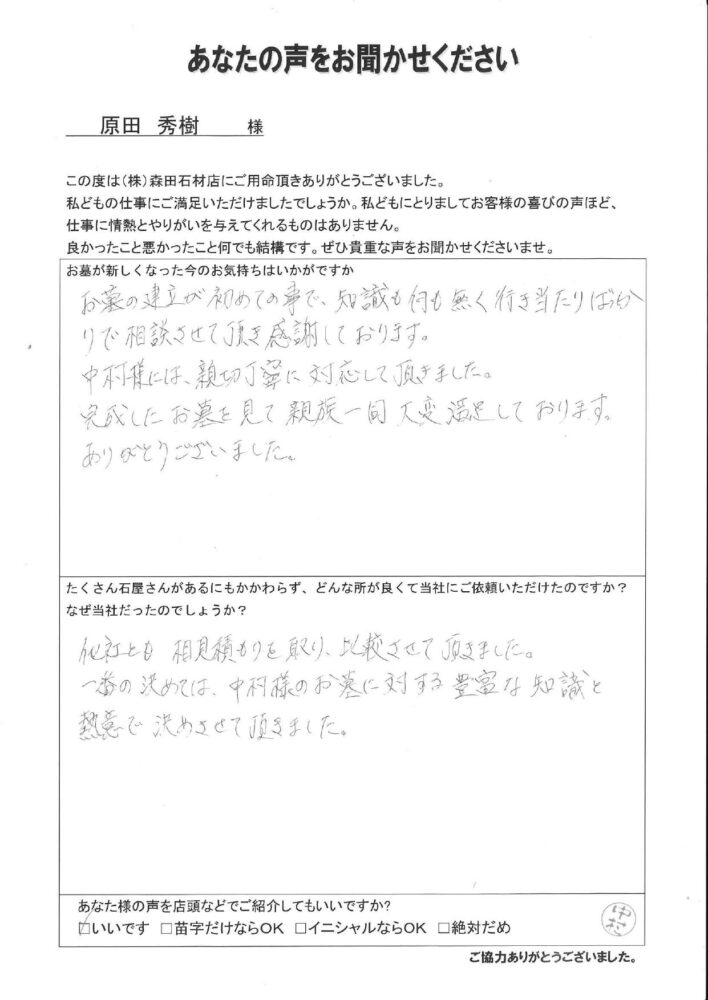 あなたの声をお聞かせください
原田 秀樹 様
この度は(株)森田石材店にご用命頂きありがとうございました。
私どもの仕事にご満足いただけましたでしょうか。私どもにとりましてお客様の喜びの声ほど、
仕事に情熱とやりがいを与えてくれるものはありません。
良かったこと悪かったこと何でも結構です。ぜひ貴重な声をお聞かせくださいませ。
お墓が新しくなった今のお気持ちはいかがですか
お墓の建立が初めての事で、知識も何も無く行き当たりばっか
りで相談させて頂き感謝しております。
中村様には、親切丁寧に対応して頂きました。
完成したお墓を見て親族一同大変満足しております。
ありがとうございました。
たくさん石屋さんがあるにもかかわらず、どんな所が良くて当社にご依頼いただけたのですか?
なぜ当社だったのでしょうか?
他社とも相見積もりを取り、比較させて頂きました。
一番の決めては、中村様のお墓に対する豊富な知識と
熱意で決めさせて頂きました。
あなた様の声を店頭などでご紹介してもいいですか?
□いいです □苗字だけならOK □イニシャルならOK □絶対だめ
中村
ご協力ありがとうございました。